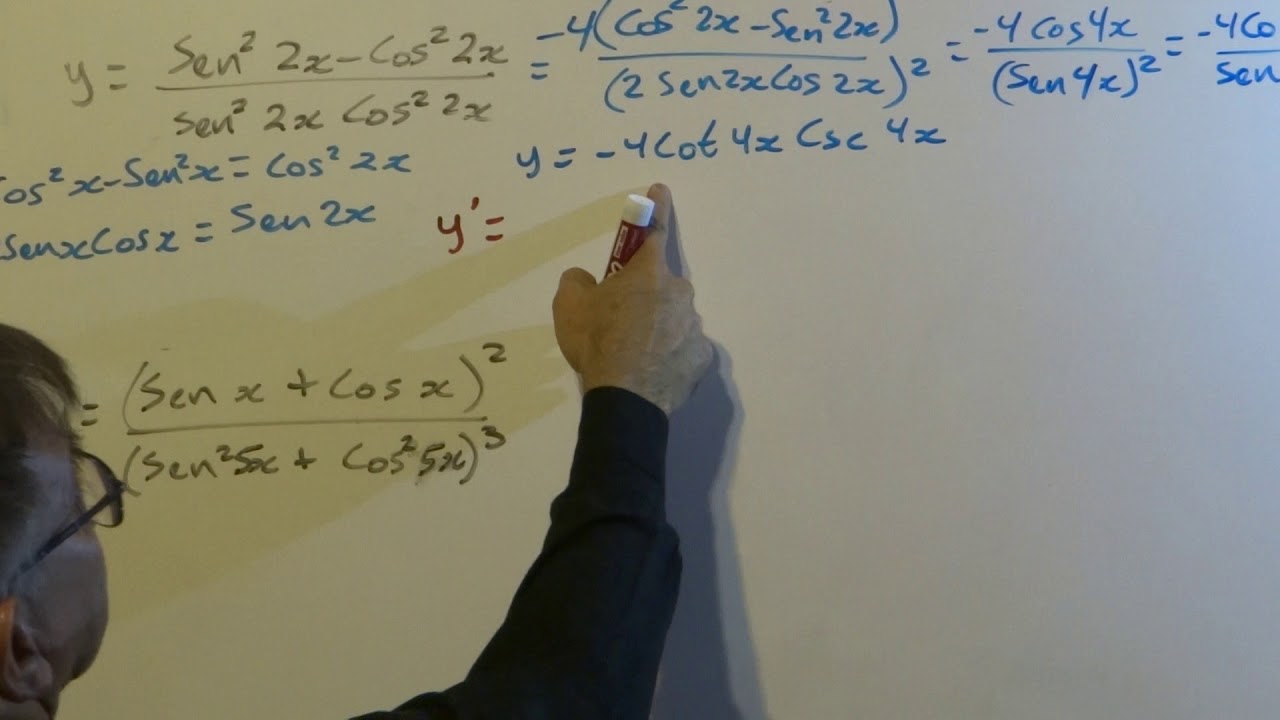 y = Sen² 2x - Cos² 2x / sen² 2x Cos² 2x = -4(Cos² 2x - Sen² 2x) / (2 Sen2x Cos 2x)² = -4 Cos 4x / (Sen 4x)² = -4Co / Sen
y = -4 Cot 4x Csc 4x
os² x - Sen² x = Cos² 2x
senx Cos x = Sen 2x
y' =
= (Sen x + Cos x)² / (Sen² 5x + Cos² 5x)³